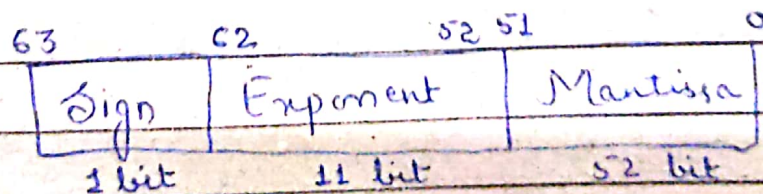 63 62 52 51 0
Sign Exponent Mantissa
1 bit 11 bit 52 bit